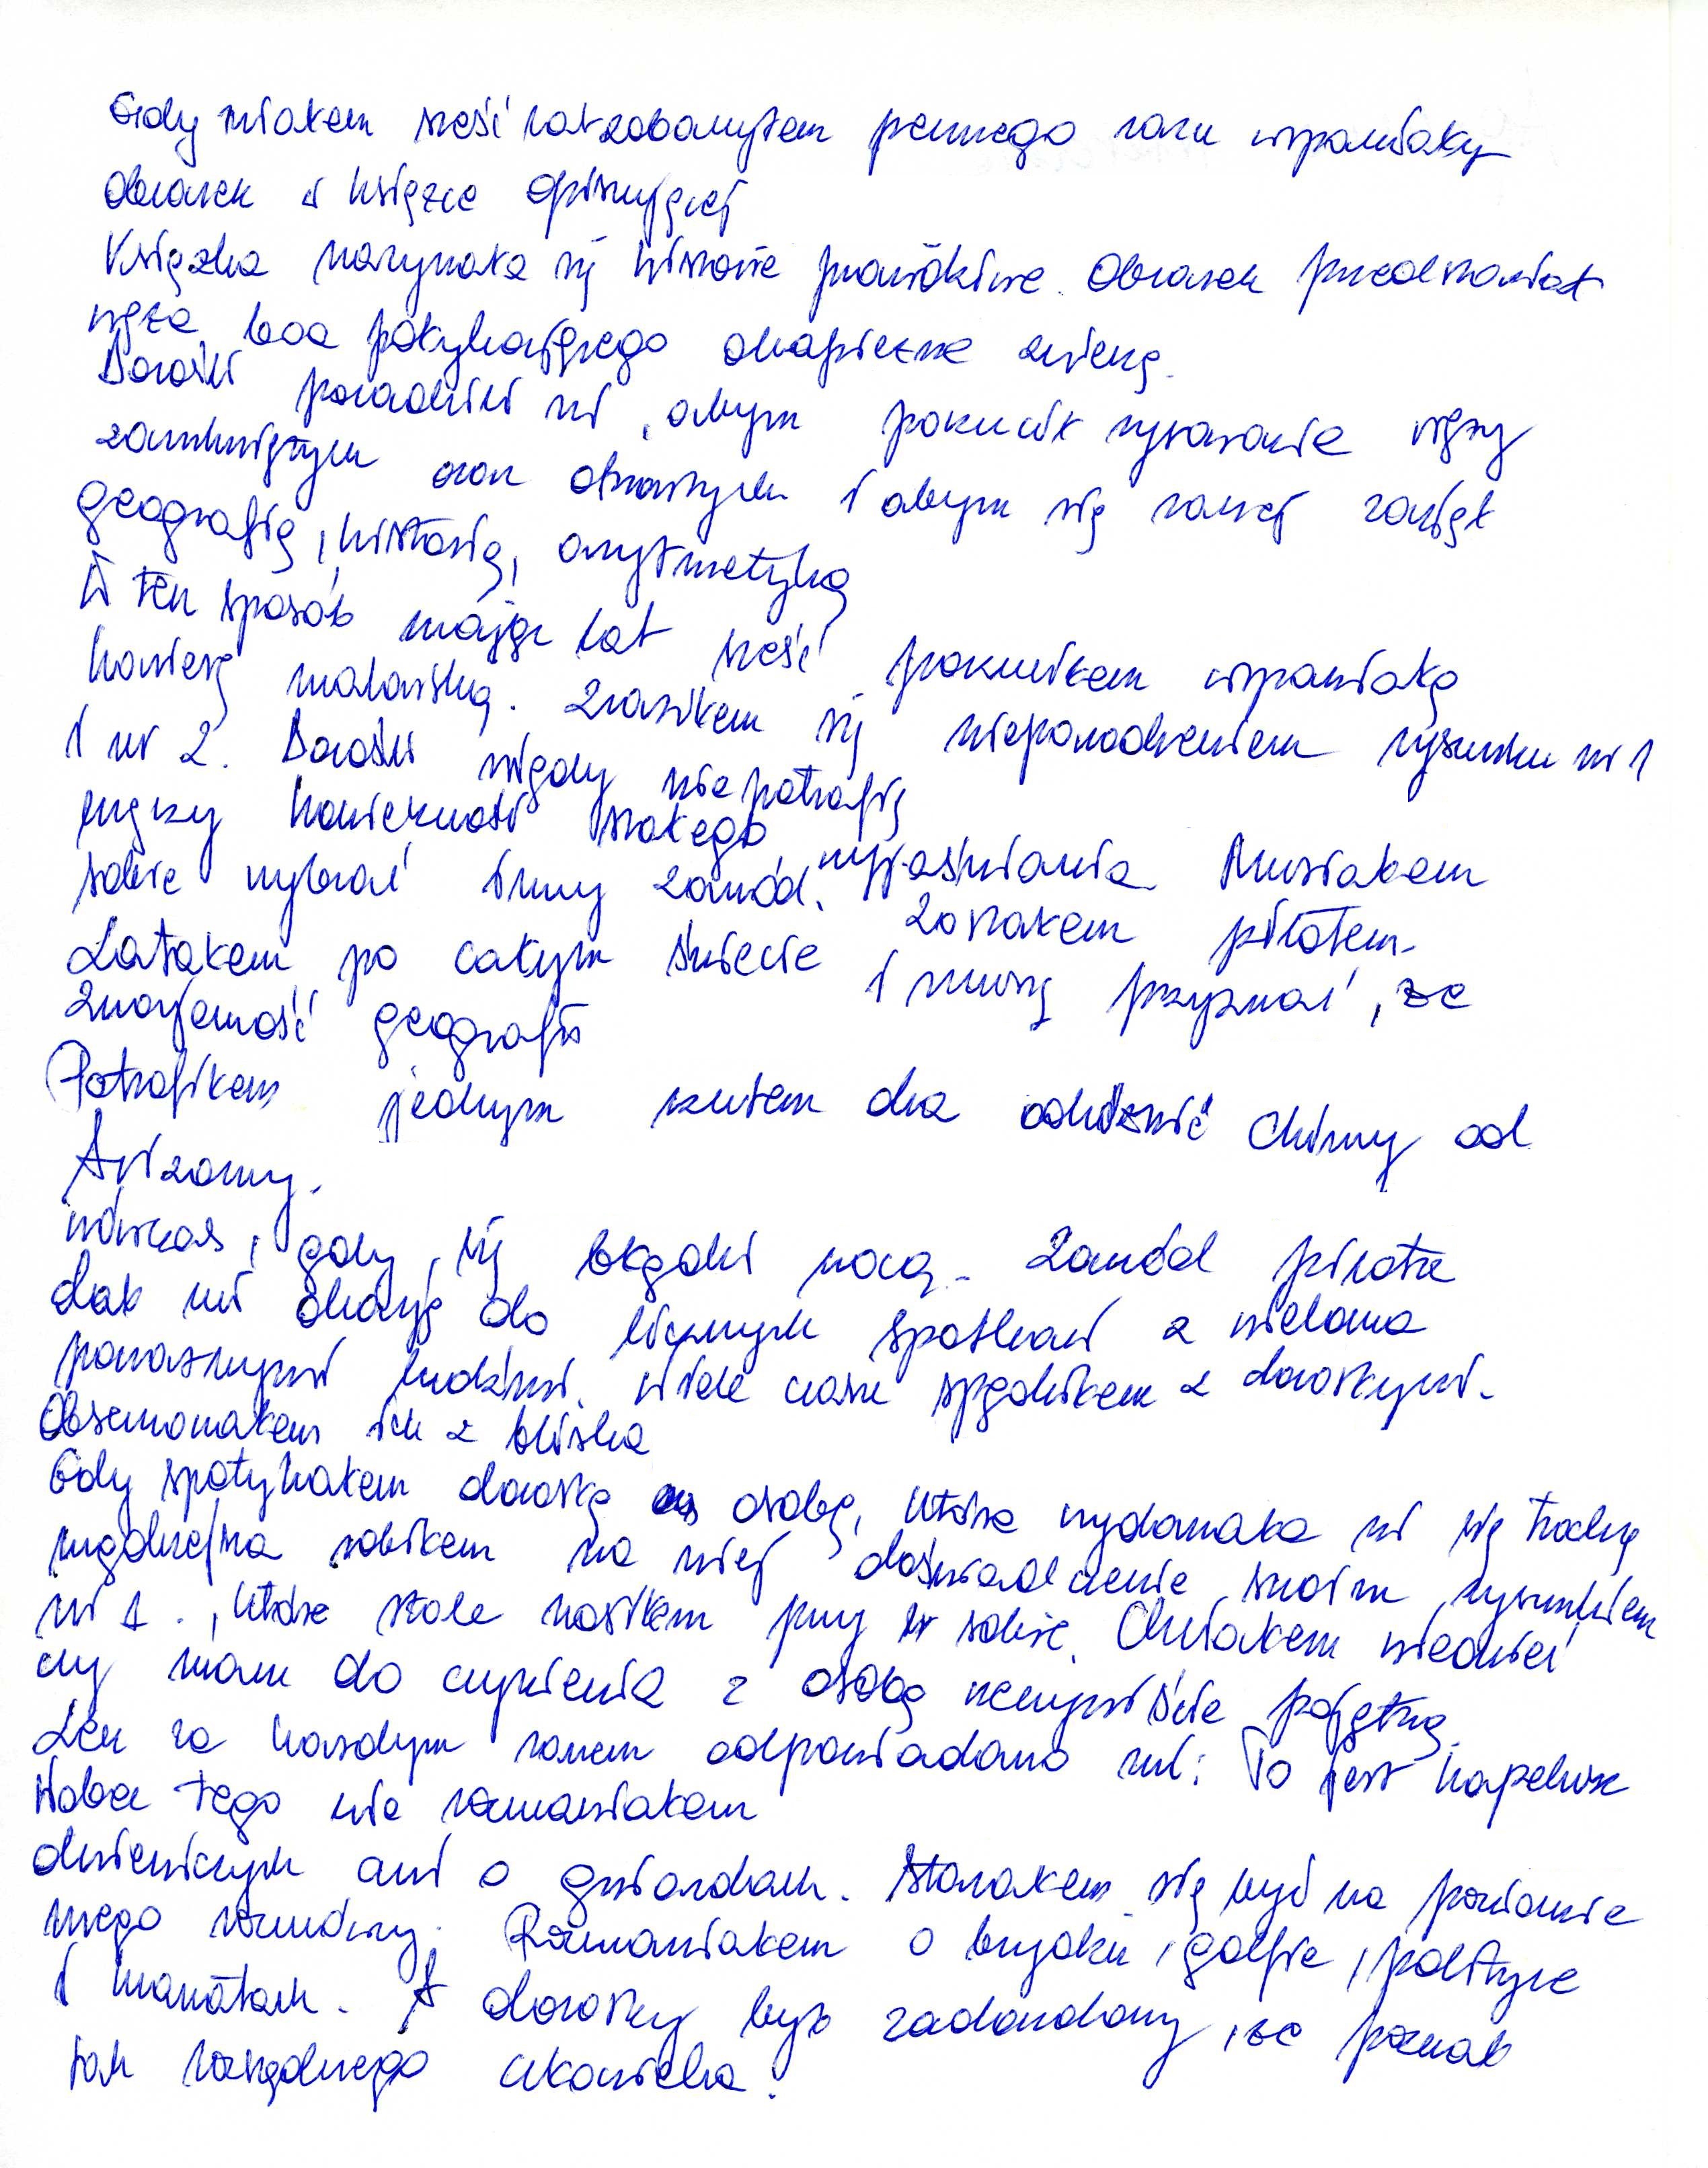 Gdy miałem sześć lat zobaczyłem pewnego razu wspaniały
obrazek w książce opisującej
Książka nazywała się historie prawdziwe. Obrazek przedstawiał
węża boa połykającego drapieżne zwierzę.
Dorośli poradzili mi, abym porzucił rysowanie węży
zamkniętych oraz otwartych i abym się raczej zajął
geografią, historią, arytmetyką
W ten sposób mając lat sześć porzuciłem wspaniałą
karierę malarską. Zraziłem się niepowodzeniem rysunku nr 1
i nr 2. Dorośli nigdy nie potrafią
męczy konieczność stałego wyjaśniania Musiałem
sobie wybrać inny zawód. Zostałem pilotem.
Latałem po całym świecie i muszę przyznać, że
znajomość geografii
Potrafiłem jednym rzutem oka odróżnić Chiny od
Arizony.
wówczas, gdy się błądzi nocą. Zawód pilota
dał mi okazję do licznych spotkań z wieloma
poważnymi ludźmi. Wiele czasu spędziłem z dorosłymi.
Obserwowałem ich z bliska
Gdy spotykałem dorosłą osobę, która wydawała mi się trochę
mądrzejsza robiłem na niej doświadczenie moim rysunkiem
nr 1., które stale nosiłem przy sobie. Chciałem wiedzieć
czy mam do czynienia z osobą rzeczywiście pojętną
Lecz za każdym razem odpowiadano mi: To jest kapelusz
Wobec tego nie rozmawiałem
dziewiczych ani o gwiazdach. Starałem się być na poziomie
mego rozmówcy. Rozmawiałem o brydżu, golfie, polityce
i krawatach. A dorosły był zadowolony, że poznał
tak rozsądnego człowieka.